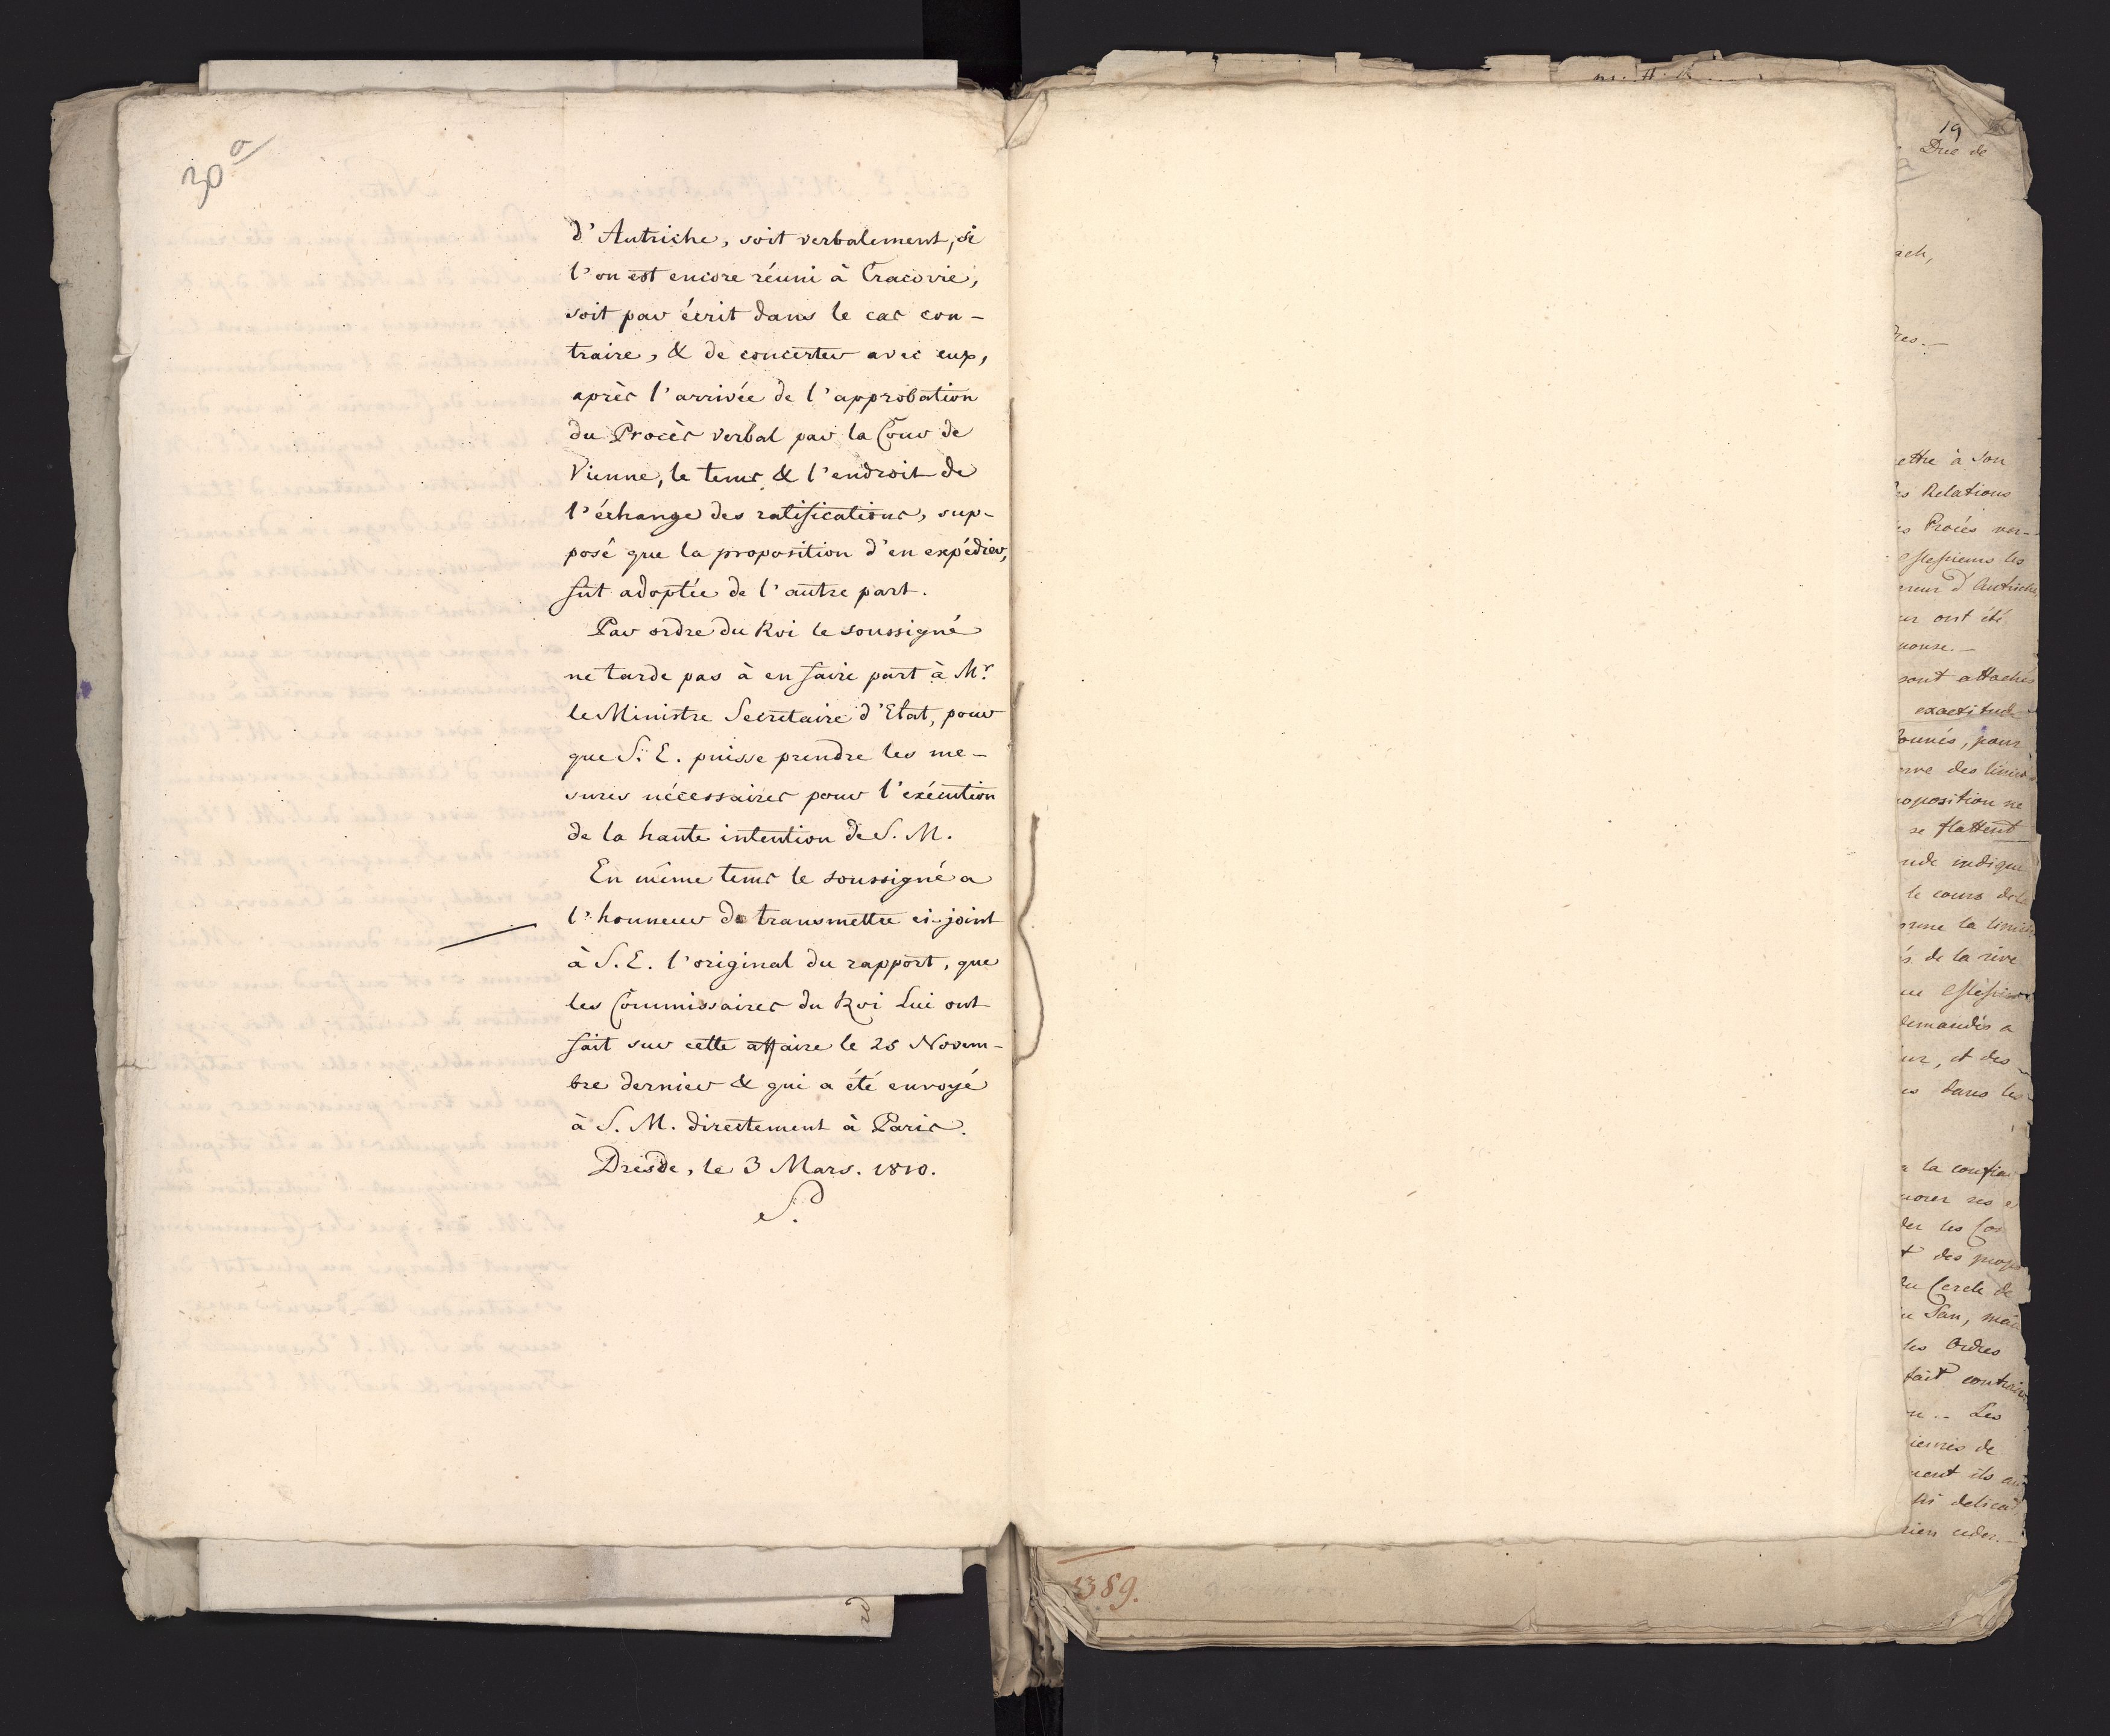 30 a
d'Autriche, soit verbalement, si
l'on est encore réuni à Cracovie,
soit par écrit dans le cas con-
traire, & de concerter avec eux,
après l'arrivée de l'approbation
du Procès verbal par la Cour de
Vienne, le tems & l'endroit de
l'échange des ratifications, sup-
posé que la proposition d'en expédier,
fut adoptée de l'autre part.
Par ordre du Roi le soussigné
ne tarde pas à en faire part à Mr.
le Ministre Secretaire d'Etat, pour
que S. E. puisse prendre les me-
sures nécessaires pour l'exécution
de la haute intention de S. M.
En même tems le soussigné a
l'honneur de transmettre ci-joint
à S. E. l'original du rapport, que
les Commissaires du Roi Lui ont
fait sur cette affaire le 25 Novem-
bre dernier & qui a été envoyé
à S. M. directement à Paris.
Dresde, le 3 Mars. 1810.
S.
19
Duc de
ettre à son
Relations
Procès ver-
d'Autriche,
ont été
sont attachés
exactitude
pour
des
oposition ne
se flattent
indique
le cours de la
la
de la rive
demandés a
et des
dans les
la
ses
les
des
Cercle de
San,
les Ordres
fait
Les
de
ils
1389.